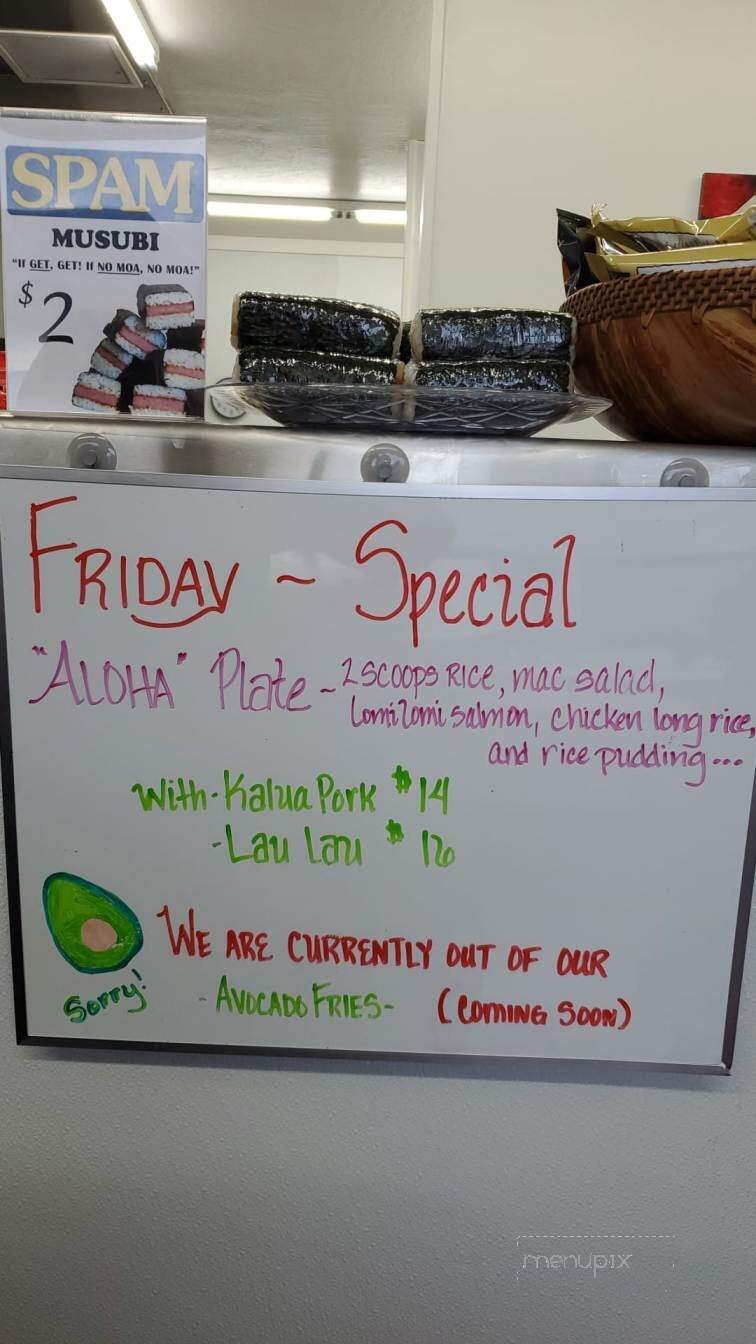 SPAM
MUSUBI
"If GET, GET! If NO MOA, NO MOA!"
$2
FRIDAY ~ Special
"ALOHA" Plate ~ 2 SCOOPS RICE, mac salad,
Lomi Lomi salmon, chicken long rice,
and rice pudding...
With - Kalua Pork $14
- Lau Lau $16
WE ARE CURRENTLY OUT OF OUR
Sorry!
- AVOCADO FRIES - (COMING SOON)
menupix